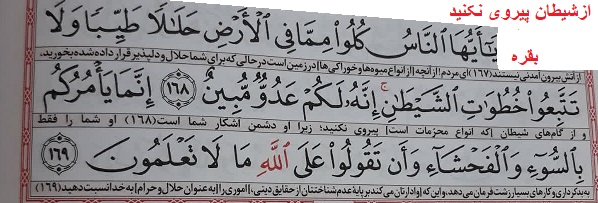 ازشیطان پیروی نکنید
بقره
يَٰٓأَيُّهَا ٱلنَّاسُ كُلُوا۟ مِمَّا فِى ٱلْأَرْضِ حَلَٰلًا طَيِّبًا وَلَا
از آتش بیرون آمدنی نیستند (۱۶۷) ای مردم! از آنچه [از انواع میوه‌ها و خوراکی‌ها] در زمین است در حالی که برای شما حلال و دلپذیر قرار داده شده بخورید،
تَتَّبِعُوا۟ خُطُوَٰتِ ٱلشَّيْطَٰنِ إِنَّهُۥ لَكُمْ عَدُوٌّ مُّبِينٌ ۱۶۸ إِنَّمَا يَأْمُرُكُم
و از گام‌های شیطان [که انواع محرمات است] پیروی نکنید؛ زیرا او دشمن آشکار شما است (۱۶۸) او شما را فقط
بِٱلسُّوٓءِ وَٱلْفَحْشَآءِ وَأَن تَقُولُوا۟ عَلَى ٱللَّهِ مَا لَا تَعْلَمُونَ ۱۶۹
به بدکرداری و کارهای بسیار زشت فرمان می‌دهد، و این که [وادارتان می‌کند بر پایهٔ عدم شناختتان از حقایق دینی،] اموری را [به عنوان حلال و حرام] به خدا نسبت دهید (۱۶۹)